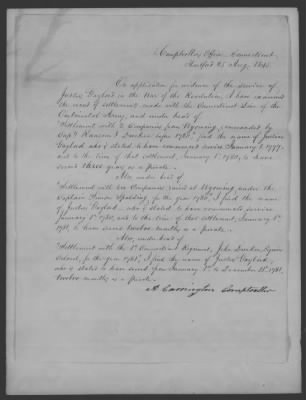 Comptrollers Office, Connecticut
Hartford 25 Aug. 1845.
On application for evidence of the services of
Justus Gaylord in the War of the Revolution, I have examined
the record of settlements made with the Connecticut Line of the
Continental Army, and under head of
"Settlement with 2 Companies from Wyoming, commanded by
Capts Ransom & Durkee" I find the name of Justus
Gaylord who is stated to have commenced service January 1st 1777.
and to the time of that settlement, January 1st 1780, to have
served three years as a private.
Also under head of
Settlement with two Companies raised at Wyoming, under the
Captain Simon Spalding, for the year 1780, I find the name
of Justus Gaylord, who is stated to have commenced service
January 1st 1780, and to the time of this settlement, January 1st
1781, to have served twelve months as a private.
Also, under head of
Settlement with the 1st Connecticut Regiment, John Durkee, Esquire
Colonel, for the year 1781, I find the name of Justus Gaylord,
who is stated to have served from January 1st to December 31st 1781,
twelve months as a private.
A Carrington Comptroller